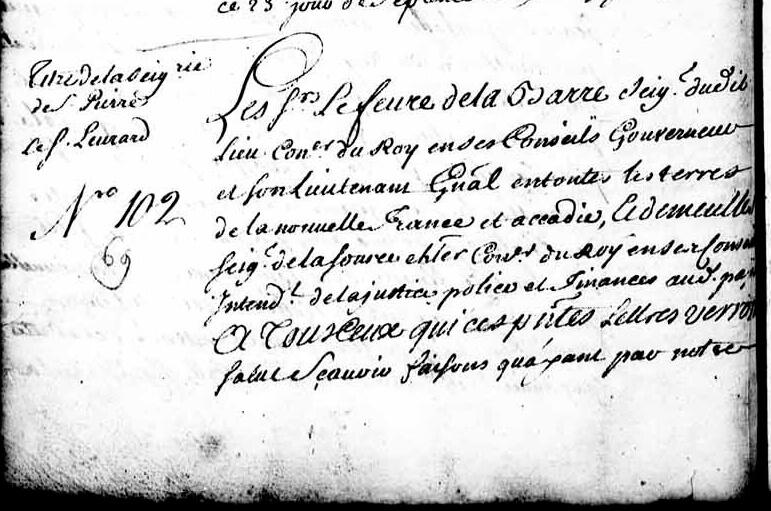 ce 23 jour de Septembre
Titre de la Seig.rie
de S.t Pierre
Le S.r Levrard
N.ro 102
69
Les S.rs Le febure de la Barre Seig.r dudit
lieu Con.er du Roy en ses Conseils Gouverneur
et son Lieutenant Gnãl en toutes les terres
de la nouvelle France et accadie, Et demeulle
Seig.r de la source ch.ler Con.er du Roy en ses Conseils
Intend.t de la justice police et Finances aud. païs
A Tous Ceux qui ces pñtes Lettres verront
salut Sçavoir faisons qu'ayant par notre